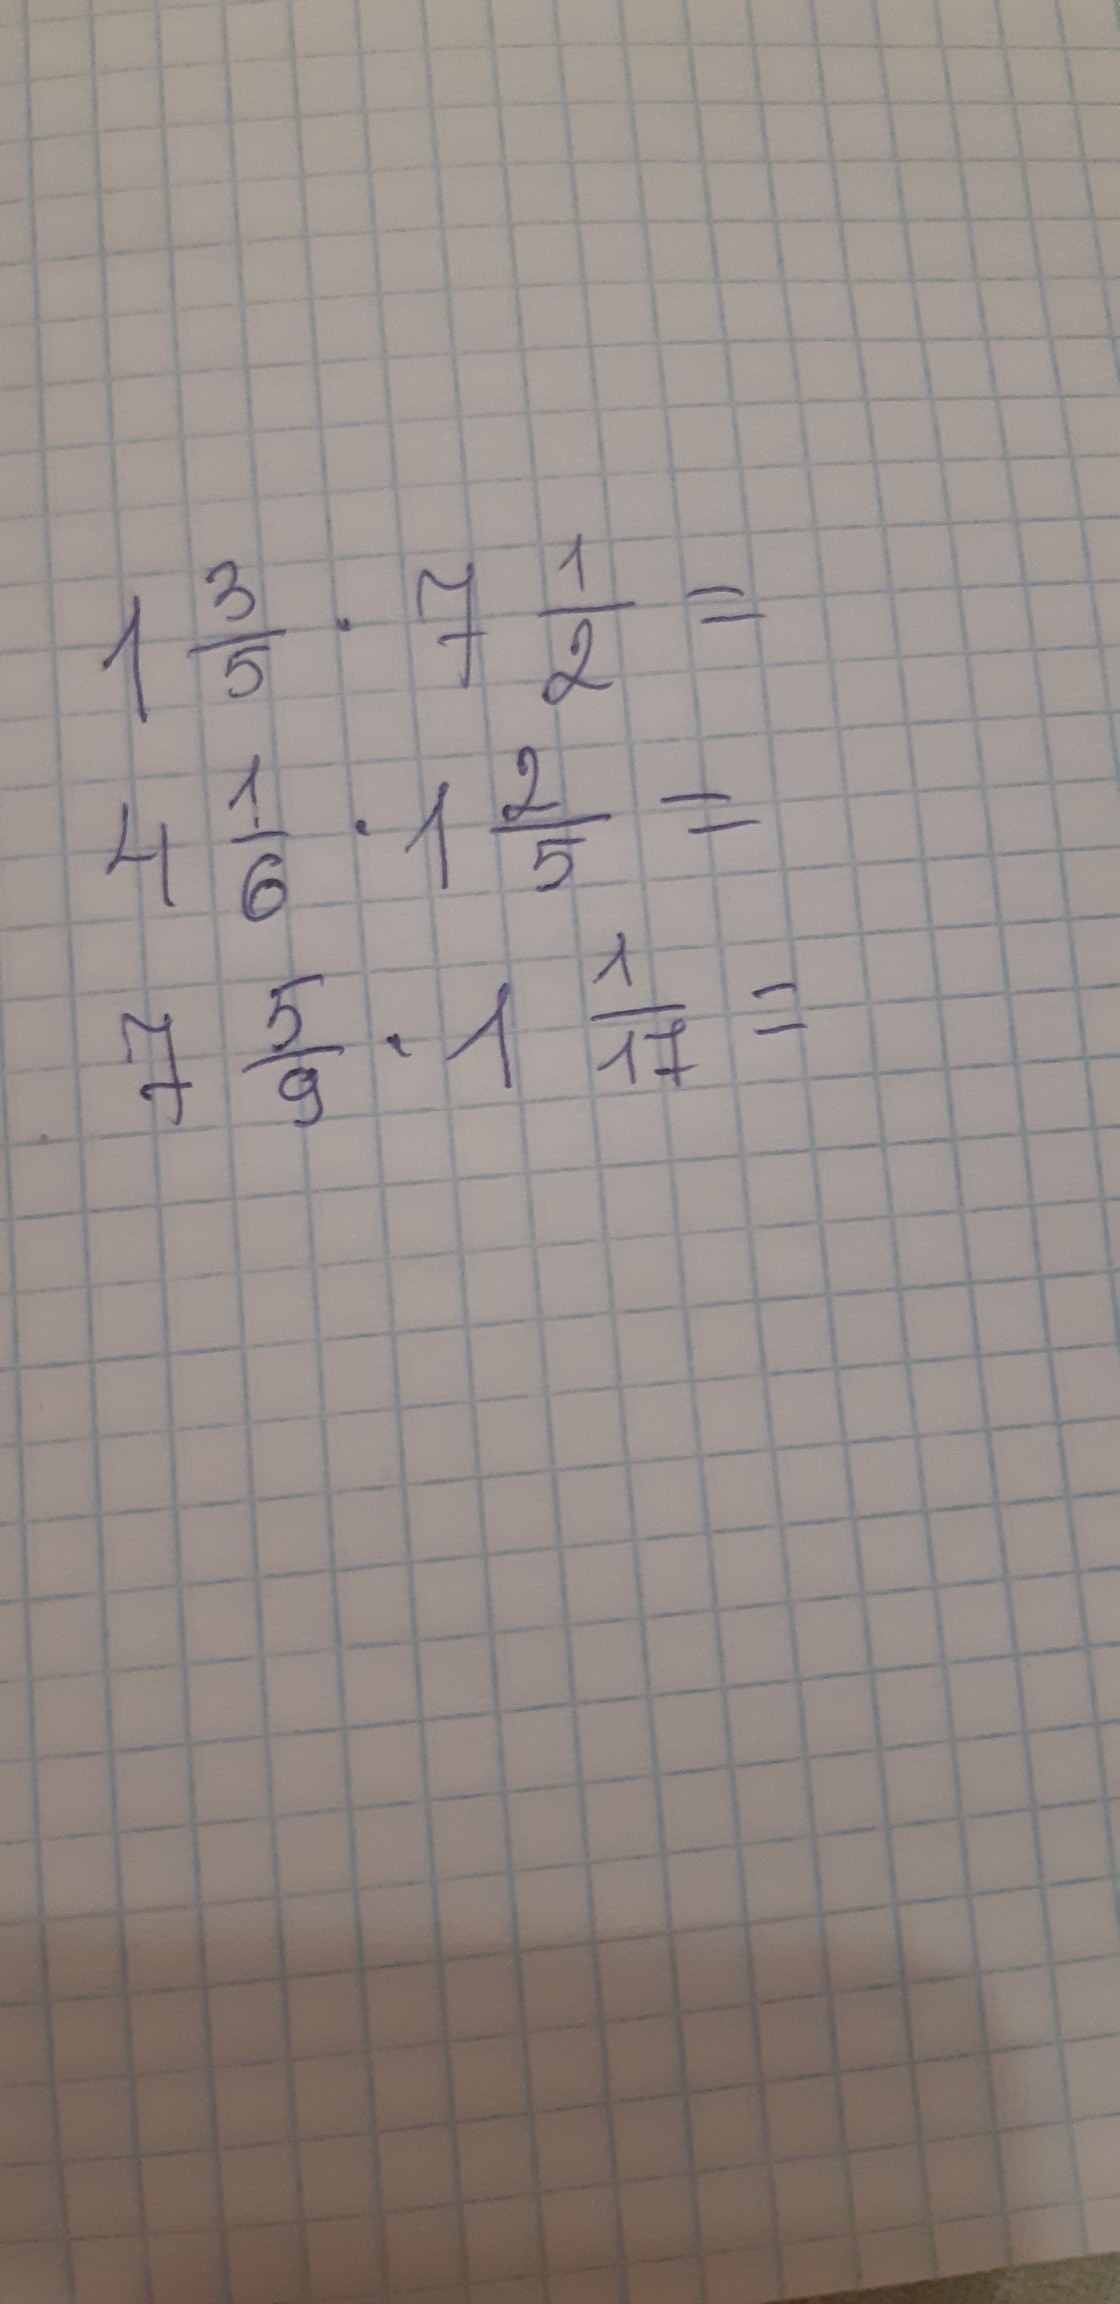 1 3/5 · 7 1/2 =
4 1/6 · 1 2/5 =
7 5/9 · 1 1/17 =